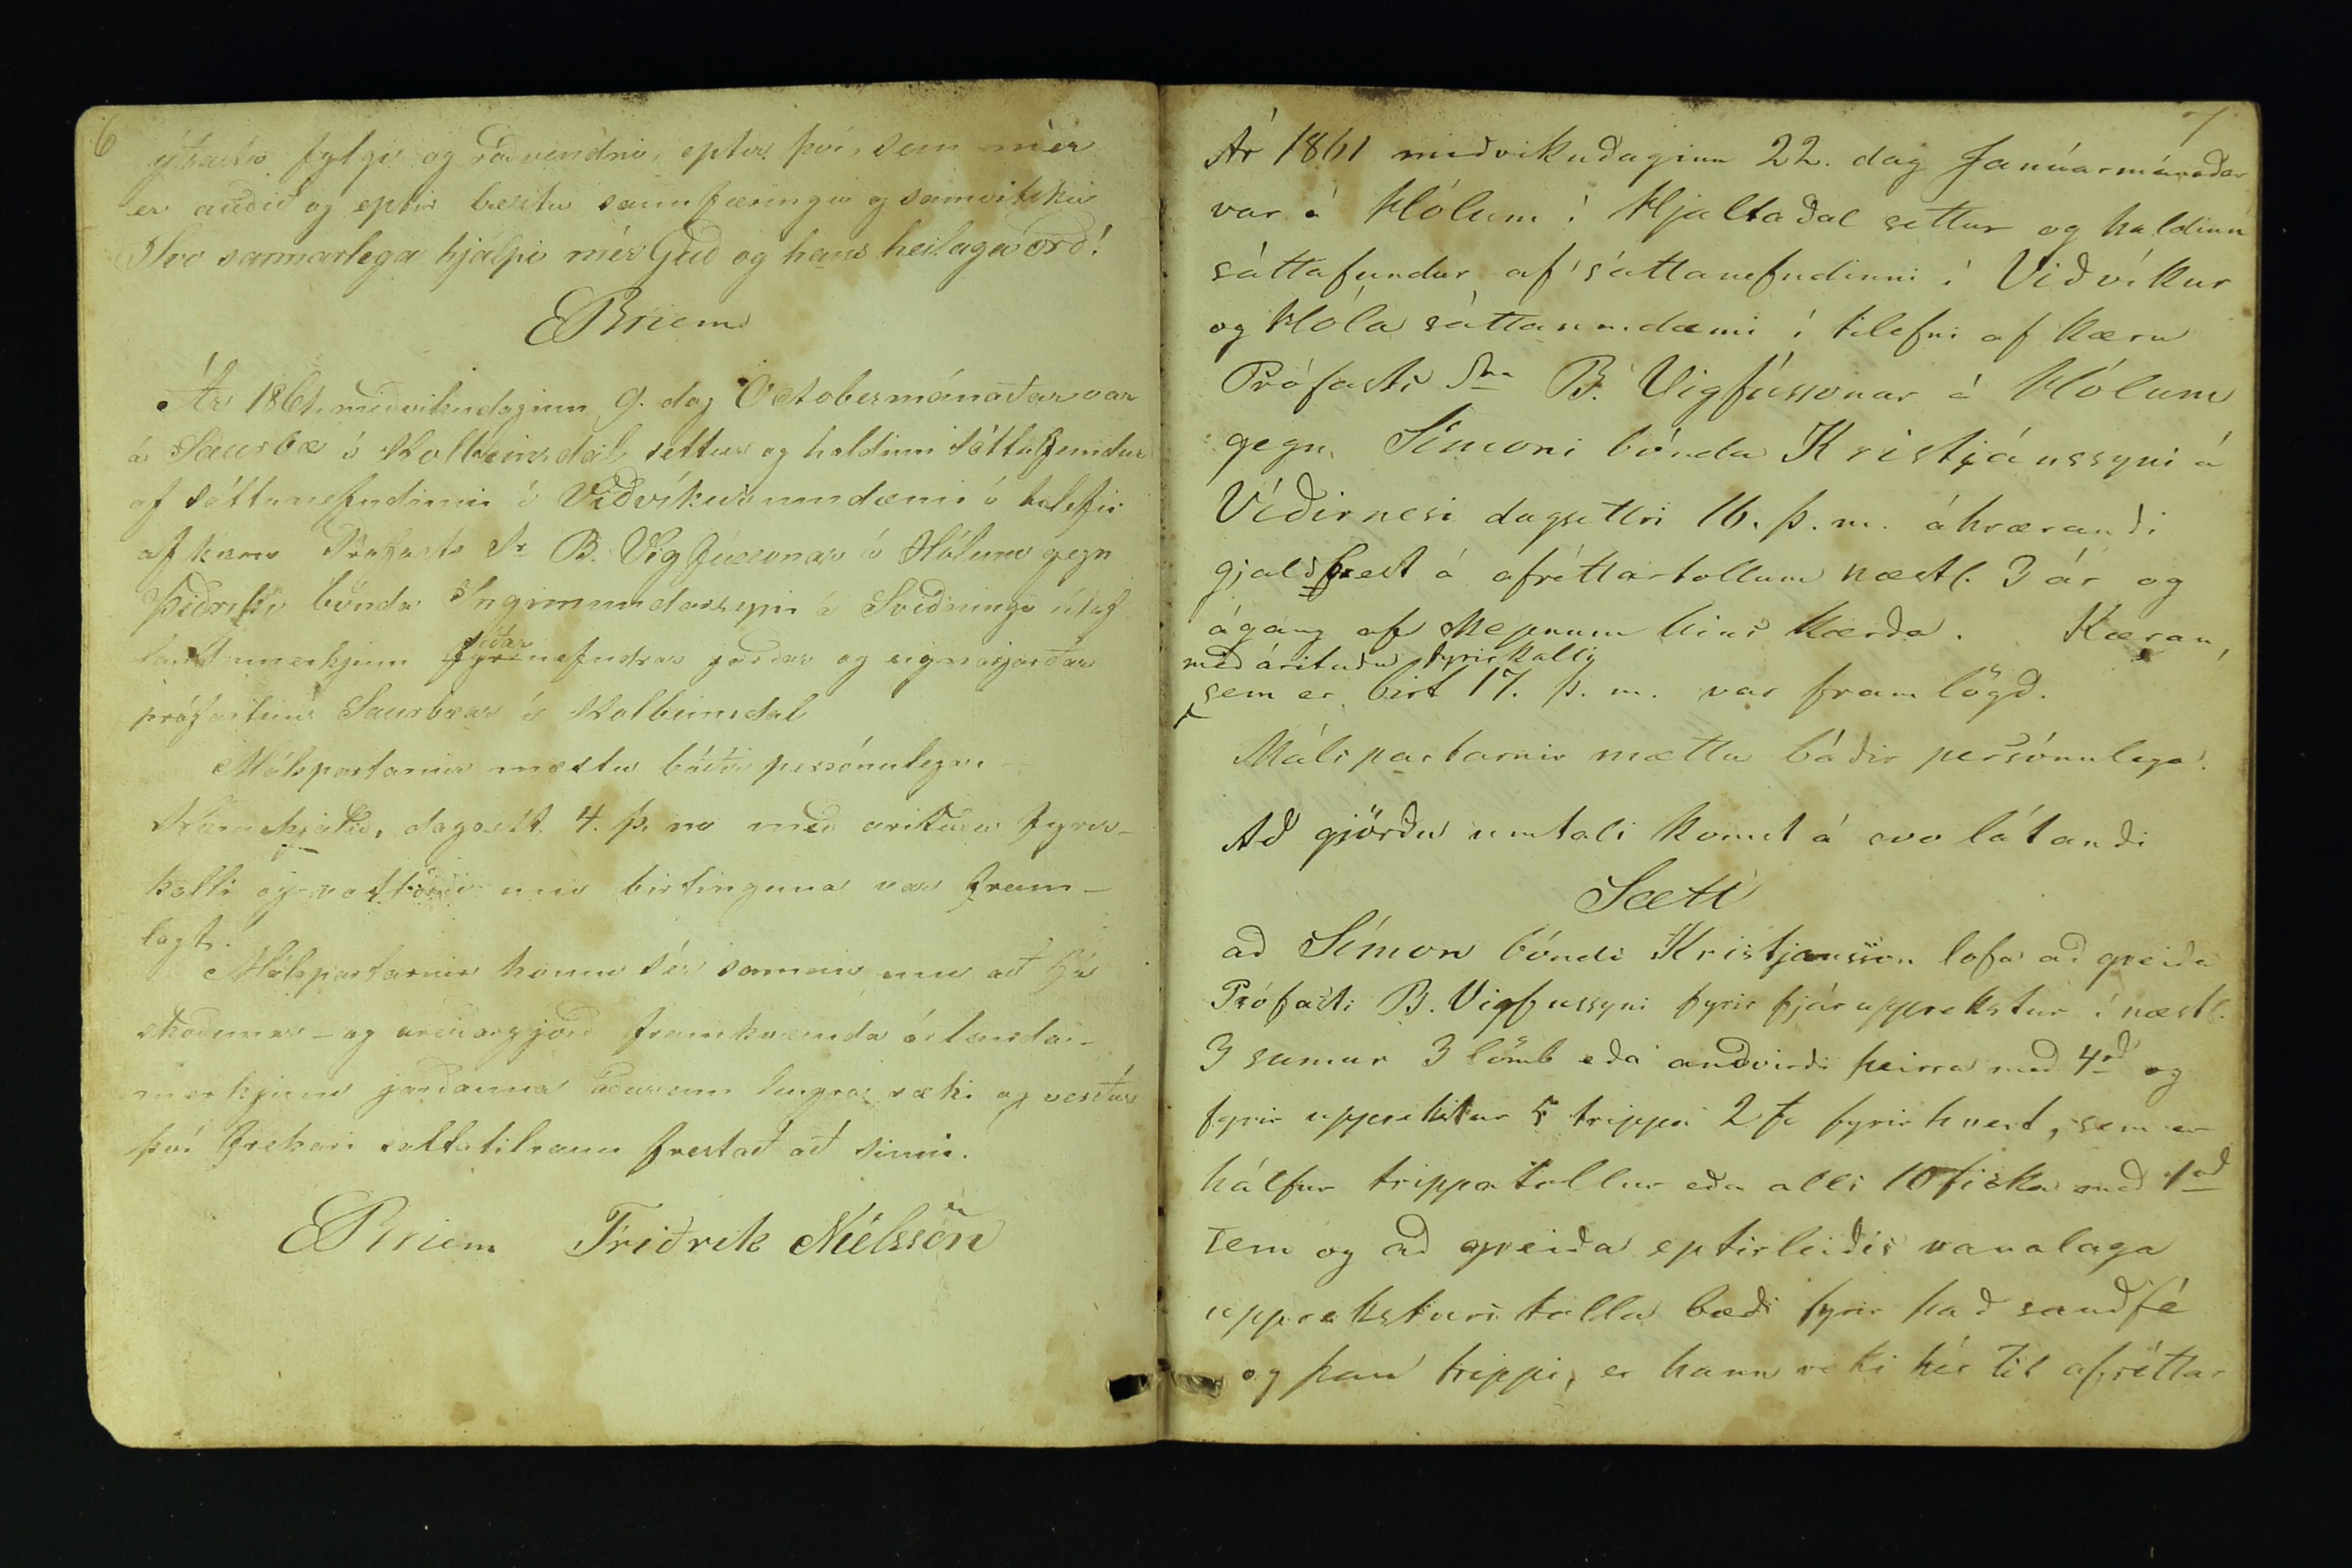 6
ýtrasta fylgi og ráðvendni, eptir því, sem mér
er auðið og eptir bestu sannfæringu og samvitsku
Svo sannarlega hjálpi mér Guð og hans heilaga orð!
EBriem
Ár 1861, miðvikudaginn 9. dag Octobermánaðar var
á Saurbæ í Kolbeinsdal settur og haldinn sáttafundur
af sáttanefndinni í Viðvíkur umdæmi í tilefni
af kæru Prófasts Sr B. Vigfússonar á Hólum gegn
Þiðriki bónda Ingimundarsyni á Sviðningi útaf
landamerkjum síðar
fyrrnefndrar jarðar og eignarjarðar
prófastsins Saurbæar í Kolbeinsdal
Málspartarnir mættu báðir persónulega
Kæruskjalið, dagsett 4. þ. m með árituðu fyrir-
kalli og vottorði um birtinguna var fram-
lagt.
Málspartarnir komu sér saman um að fá
skoðunar- og áreiðargjörð framkvæmda á landa-
merkjum jarðanna áður enn lengra ræki og verður
því frekari sáttatilraun frestað að sinni.
EBriem Friðrik Níelsson
7
Ár 1861 miðvikudaginn 22. dag Janúarmánaðar
var á Hólum í Hjaltadal settur og haldinn
sáttafundur af sáttanefndinni í Viðvíkur
og Hóla sáttaumdæmi í tilefni af kæru
Prófasts Sra B. Vigfússonar á Hólum
gegn Símoni bónda Kristjánssyni á
Víðirnesi dagsettri 16. þ. m. áhrærandi
gjaldfrest á afréttartollum næstl. 3 ár og
ágang af skepnum hins kærða. Kæran,
með árituðu fyrirkalli
sem er birt 17. þ. m. var fram lögð.
Málspartarnir mættu báðir persónulega.
Að gjörðu umtali komst á svo látandi
Sætt
að Símon bóndi Kristjansson lofa að greiða
Prófasti B. Vigfussyni fyrir fjárupprekstur í næstl.
3 sumur 3 lömb eða andvirði þeirra með 4rd og
fyrir upprekstur 5 trippa 2 f fyrir hvert, sem er
hálfur trippatollur eða alls 10 fiska með 1rd
sem og að greiða eptirleiðis vanalega
uppreksturstolla bæði fyrir það sauðfé
og þau trippi, er hann reki hér til afréttar